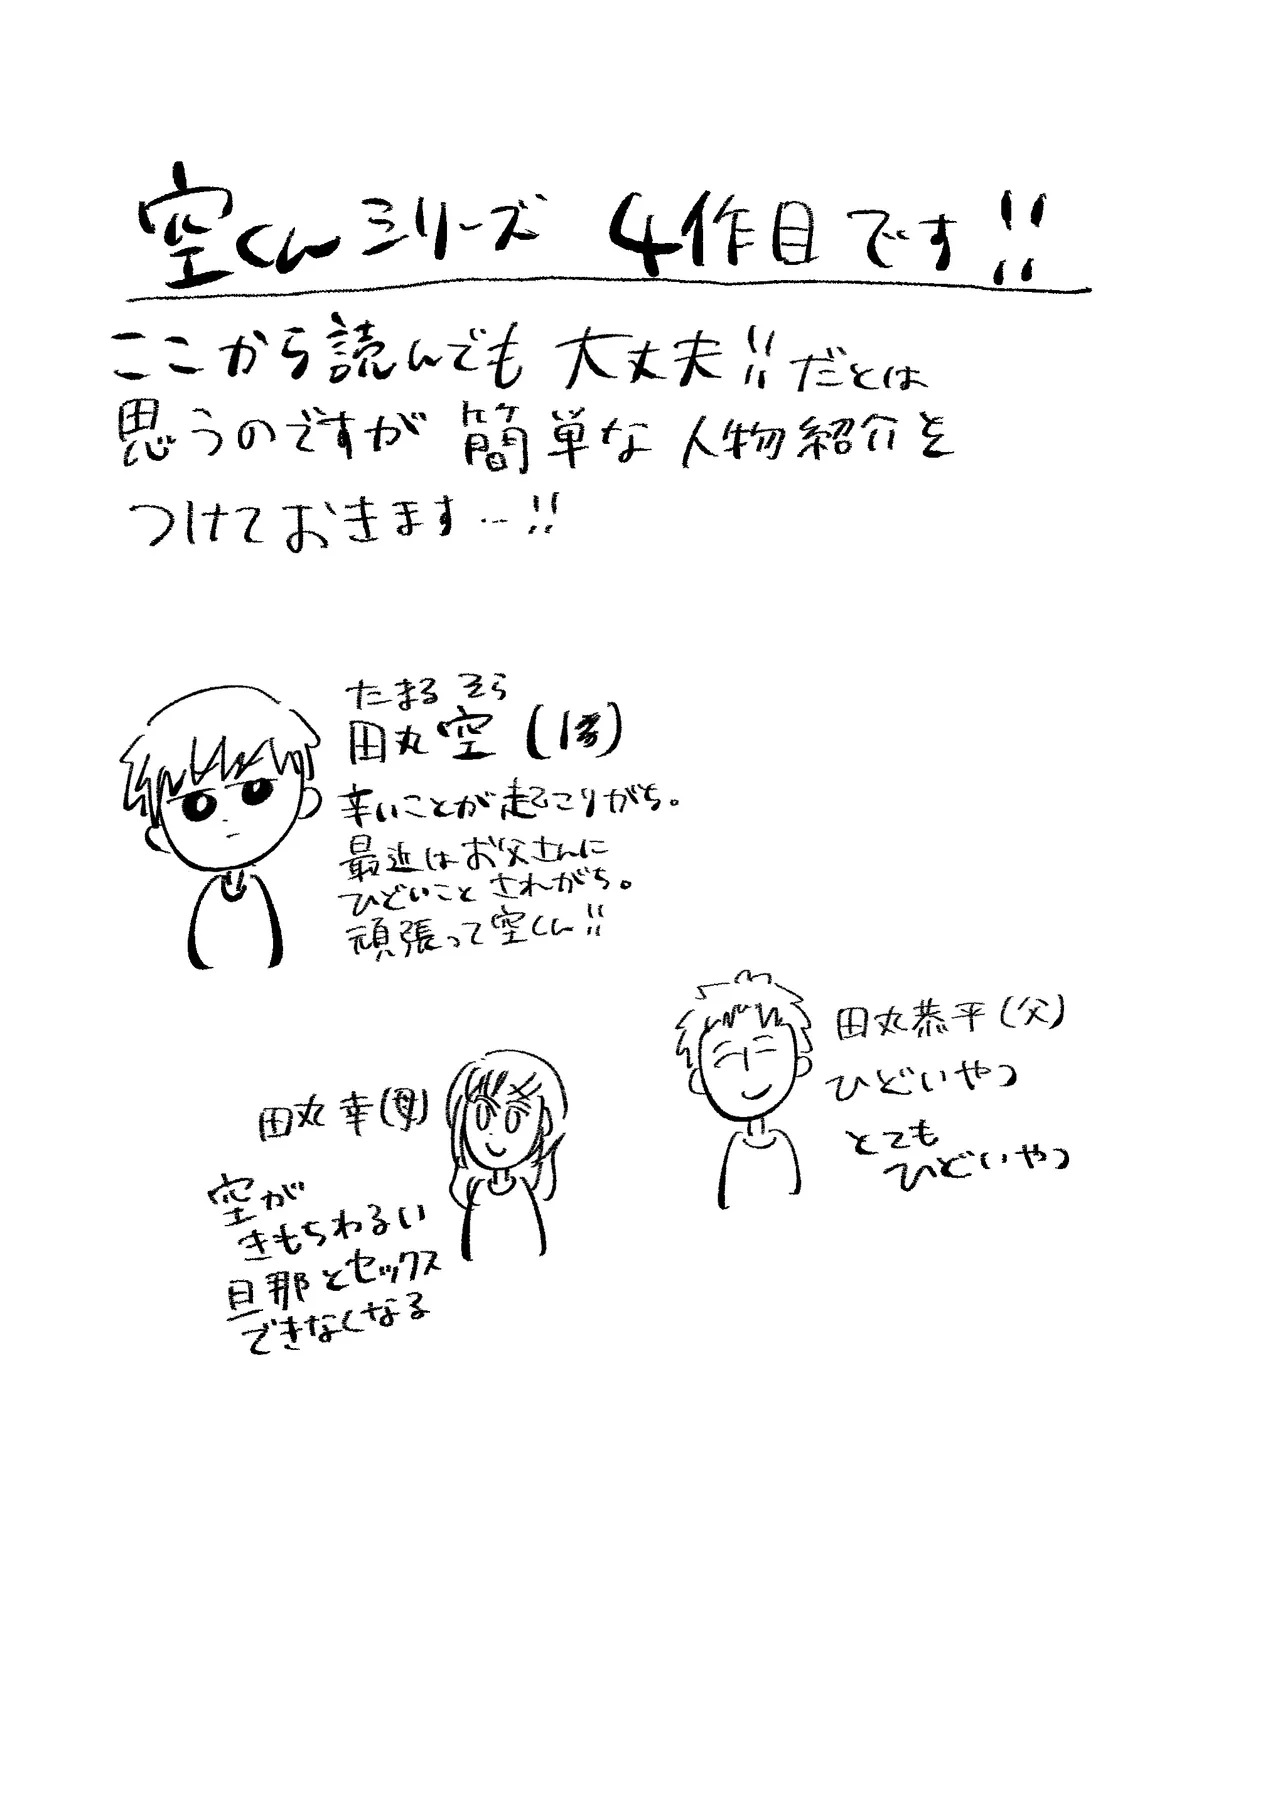 空くんシリーズ 4作目です!!
ここから読んでも 大丈夫!!だとは
思うのですが 簡単な 人物紹介を
つけておきます…!!
たまる そら
田丸 空
辛いことが起こりがち。
最近はお父さんに
ひどいこと されがち。
頑張って空くん!!
田丸恭平(父)
ひどいやつ
とても
ひどいやつ
田丸 幸(母)
空が
きもちわるい
旦那とセックス
できなくなる